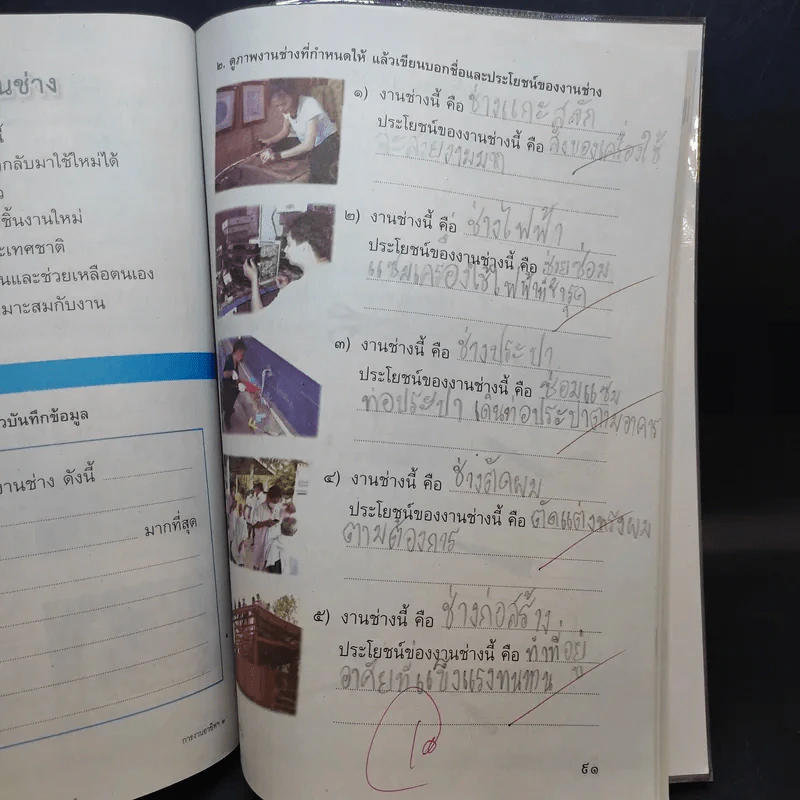 นช่าง
นี้
กลับมาใช้ใหม่ได้
ว
ชิ้นงานใหม่
ระเทศชาติ
นและช่วยเหลือตนเอง
หมาะสมกับงาน
วบันทึกข้อมูล
งานช่าง ดังนี้
มากที่สุด
การงานอาชีพฯ ๒
๒. ดูภาพงานช่างที่กำหนดให้ แล้วเขียนบอกชื่อและประโยชน์ของงานช่าง
๑) งานช่างนี้ คือ ช่างแกะสลัก
ประโยชน์ของงานช่างนี้ คือ สิ่งของเครื่องใช้
๒) งานช่างนี้ คือ ช่างไฟฟ้า
ประโยชน์ของงานช่างนี้ คือ ช่วยซ่อม
แซมเครื่องใช้ไฟฟ้าที่ชำรุด
๓) งานช่างนี้ คือ ช่างประปา
ประโยชน์ของงานช่างนี้ คือ ซ่อมแซม
ท่อประปา เดินท่อประปาตามอาคาร
๔) งานช่างนี้ คือ ช่างตัดผม
ประโยชน์ของงานช่างนี้ คือ ตัดแต่งทรงผม
ตามต้องการ
๕) งานช่างนี้ คือ ช่างก่อสร้าง
ประโยชน์ของงานช่างนี้ คือ ทำที่อยู่
อาศัยที่แข็งแรงทนทาน
๙๑